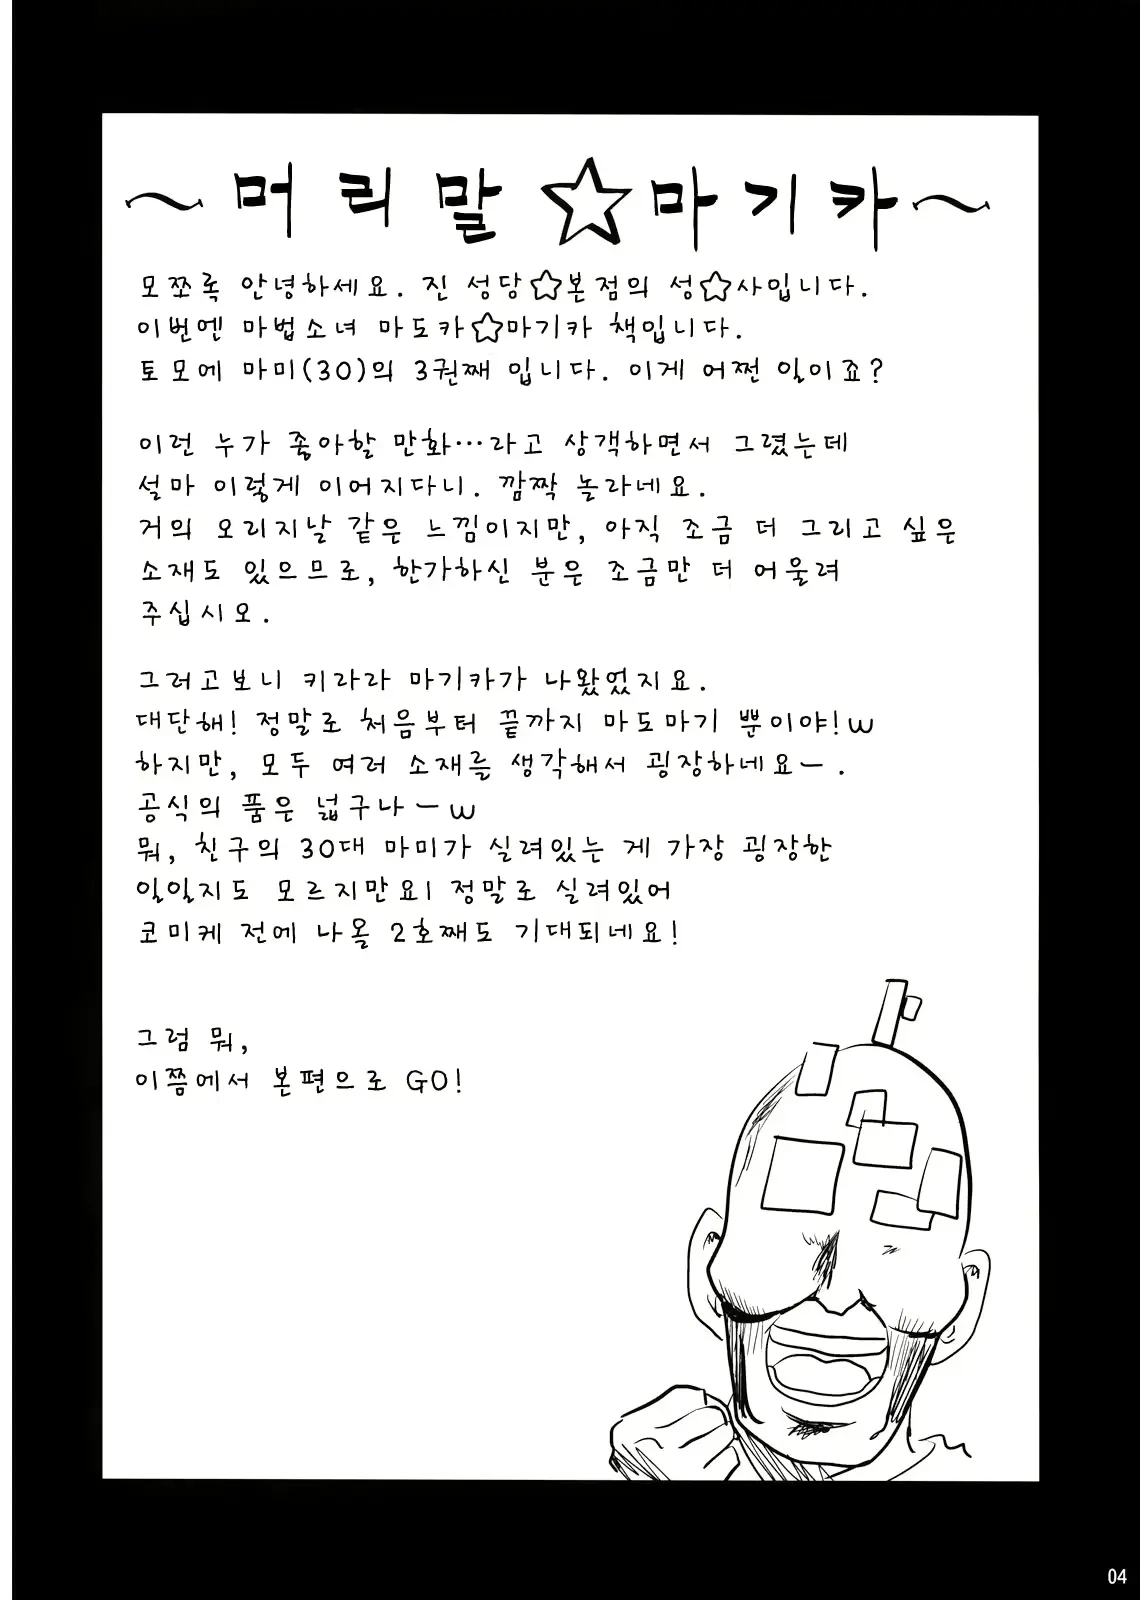 ~머리말☆마기카~
모쪼록 안녕하세요. 진 성당☆본점의 성☆사입니다.
이번엔 마법소녀 마도카☆마기카 책입니다.
토모에 마미(30)의 3권째 입니다. 이게 어쩐 일이죠?
이런 누가 좋아할 만화…라고 상객하면서 그렸는데
설마 이렇게 이어지다니. 깜짝 놀라네요.
거의 오리지날 같은 느낌이지만, 아직 조금 더 그리고 싶은
소재도 있으므로, 한가하신 분은 조금만 더 어울려
주십시오.
그러고보니 키라라 마기카가 나왔었지요.
대단해! 정말로 처음부터 끝까지 마도마기 뿐이야!w
하지만, 모두 여러 소재를 생각해서 굉장하네요ー.
공식의 품은 넓구나ーw
뭐, 친구의 30대 마미가 실려있는 게 가장 굉장한
일일지도 모르지만요! 정말로 실려있어
코미케 전에 나올 2호째도 기대되네요!
그럼 뭐,
이쯤에서 본편으로 GO!
04